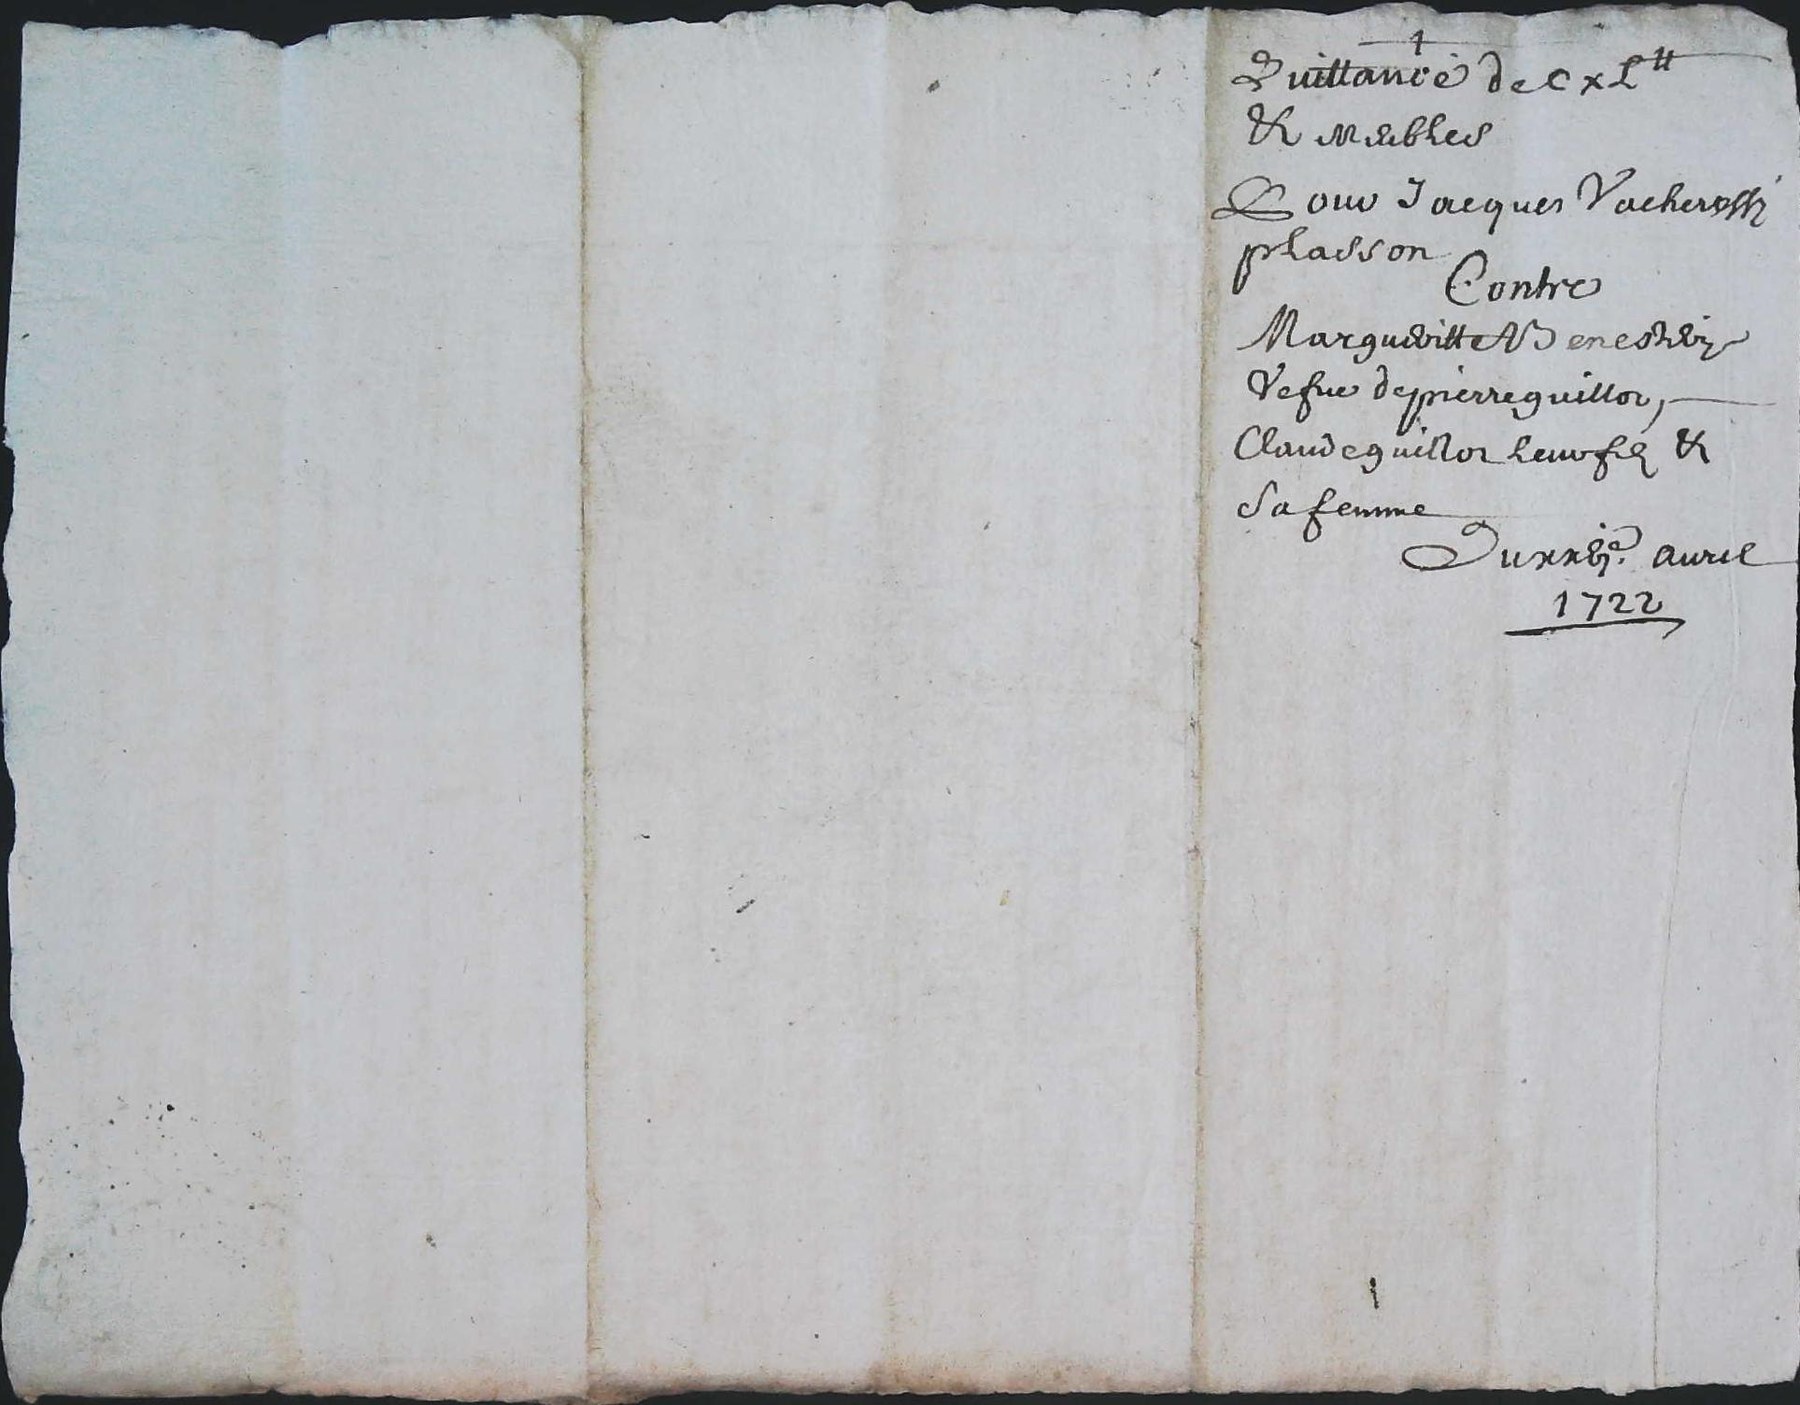 1
Quittance de Cxl ᵗᵗ
& meubles
Pour Jacques Vacherossi
plasson
Contre
Margueritte Benes
Vefue de pierre guillot,
Claude guillot leur fil &
Sa femme
Du xxvjᵉ. auril
1722